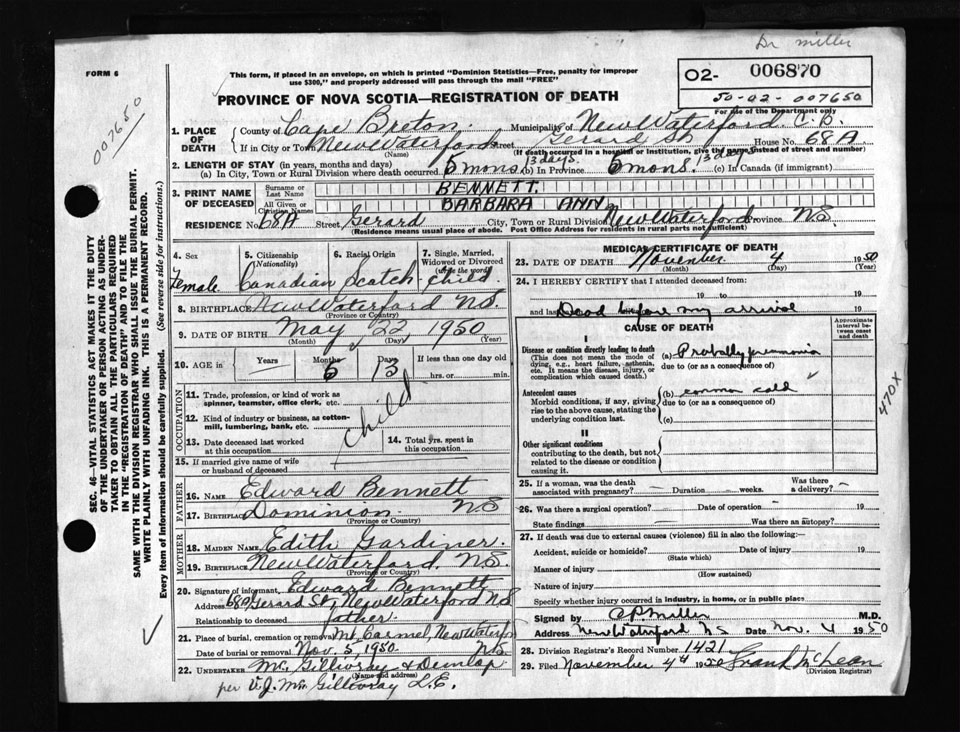 Dr Miller
FORM 6
This form, if placed in an envelope, on which is printed "Dominion Statistics—Free, penalty for improper
use $300," and properly addressed will pass through the mail "FREE"
02- 006870
50-02-007650
For use of the Department only
007650
PROVINCE OF NOVA SCOTIA—REGISTRATION OF DEATH
1. PLACE OF DEATH
County of Cape Breton Municipality of New Waterford C.B.
If in City or Town New Waterford Street Gerard St House No. 68A
(Name) (If death occurred in a hospital or institution, give the name instead of street and number)
2. LENGTH OF STAY (in years, months and days)
(a) In City, Town or Rural Division where death occurred 5 mons. 13 days (b) In Province 5 mons. 13 days (c) In Canada (if immigrant)
3. PRINT NAME OF DECEASED
Surname or Last Name BENNETT.
All Given or Christian Names BARBARA ANN
RESIDENCE No. 68A Street Gerard City, Town or Rural Division New Waterford Province N.S.
(Residence means usual place of abode. Post Office Address for residents in rural parts not sufficient)
4. Sex Female
5. Citizenship (Nationality) Canadian
6. Racial Origin Scotch
7. Single, Married, Widowed or Divorced (write the word) Child
8. BIRTHPLACE New Waterford N.S.
(Province or Country)
9. DATE OF BIRTH May 22, 1950
(Month) (Day) (Year)
10. AGE in Years Months 5 Days 13 If less than one day old
hrs. or min.
OCCUPATION
11. Trade, profession, or kind of work as
spinner, teamster, office clerk, etc.
12. Kind of industry or business, as cotton-
mill, lumbering, bank, etc.
child
13. Date deceased last worked
at this occupation
14. Total yrs. spent in
this occupation
15. If married give name of wife
or husband of deceased
FATHER
16. NAME Edward Bennett
17. BIRTHPLACE Dominion NS
(Province or Country)
MOTHER
18. MAIDEN NAME Edith Gardiner.
19. BIRTHPLACE New Waterford, N.S.
(Province or Country)
20. Signature of informant Edward Bennett
Address 68A Gerard St, New Waterford N.S
Relationship to deceased father.
21. Place of burial, cremation or removal Mt. Carmel, New Waterford
Date of burial or removal Nov. 5, 1950. N.S.
22. UNDERTAKER Mc Gillivray & Dunlop
(Name and address)
per V.J. Mc Gillivray L.E.
MEDICAL CERTIFICATE OF DEATH
23. DATE OF DEATH November 4 1950
(Month) (Day) (Year)
24. I HEREBY CERTIFY that I attended deceased from:
19 to 19
and last Dead before my arrival
CAUSE OF DEATH
Approximate interval between onset and death
I
Disease or condition directly leading to death
(This does not mean the mode of
dying, e.g., heart failure, asthenia,
etc. It means the disease, injury, or
complication which caused death.)
(a) Probably pneumonia
due to (or as a consequence of)
Antecedent causes
Morbid conditions, if any, giving
rise to the above cause, stating the
underlying condition last.
(b) common cold
due to (or as a consequence of)
(c)
470X
II
Other significant conditions
contributing to the death, but not
related to the disease or condition
causing it.
25. If a woman, was the death
associated with pregnancy? Duration weeks. Was there a delivery?
26. Was there a surgical operation? Date of operation 19
State findings Was there an autopsy?
27. If death was due to external causes (violence) fill in also the following:—
Accident, suicide or homicide? Date of injury 19
(State which)
Manner of injury
(How sustained)
Nature of injury
Specify whether injury occurred in industry, in home, or in public place
Signed by C.P. Miller M.D.
Address New Waterford N.S Date Nov. 4 1950
28. Division Registrar's Record Number 1421
29. Filed November 4th 1950 Frank McLean
(Division Registrar)
SEC. 46—VITAL STATISTICS ACT MAKES IT THE DUTY
OF THE UNDERTAKER OR PERSON ACTING AS UNDER-
TAKER TO OBTAIN ALL THE PARTICULARS REQUIRED
IN THE "REGISTRATION OF DEATH" AND TO FILE THE
SAME WITH THE DIVISION REGISTRAR WHO SHALL ISSUE THE BURIAL PERMIT.
WRITE PLAINLY WITH UNFADING INK. THIS IS A PERMANENT RECORD.
Every item of information should be carefully supplied. (See reverse side for instructions.)